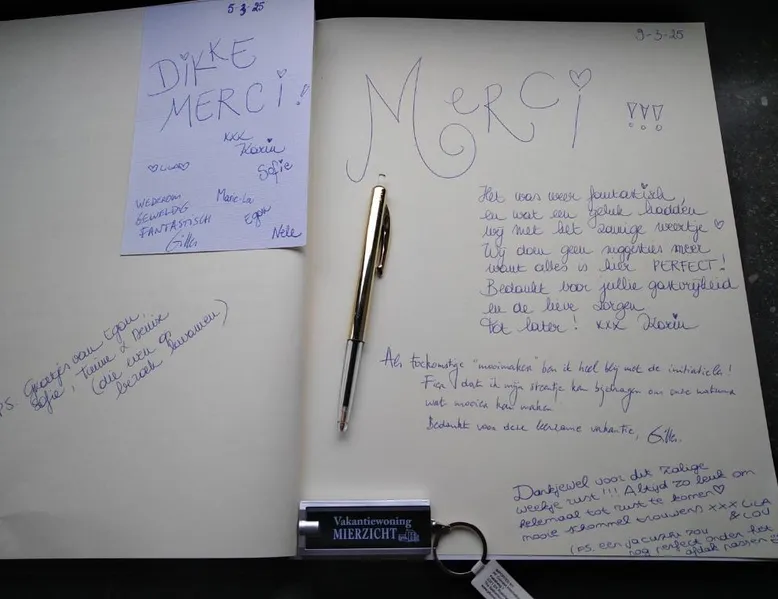 5-3-25
DIKKE
MERCI!
xxx
Karin
Sofie
WEDEROM
GEWELDIG
FANTASTISCH
Marie-Lou
Egon
Gilles
Nele
PS. Groetjes van Egon,
Sofie, Timme & Denix
(die even op
bezoek kwamen)
9-3-25
Merci !!!
Het was weer fantastisch,
en wat een geluk hadden
wij met het zonnige weertje ♡
Wij doen geen suggesties meer
want alles is hier PERFECT!
Bedankt voor jullie gastvrijheid
en de lieve zorgen
Tot later! xxx Karin
Als toekomstige "mooimaker" ben ik heel blij met de initiatieles!
Fier dat ik mijn steentje kan bijdragen om onze natuur
wat mooier kan maken
Bedankt voor deze leerzame vakantie, Gilles.
Dankjewel voor dit zalige
weekje rust!!! Altijd zo leuk om
helemaal tot rust te komen ♡
mooie schommel trouwens xxx LILA
& LOU
(PS. een jacuzzi zou
nog perfect onder het
afdak passen
Vakantiewoning
MIERZICHT